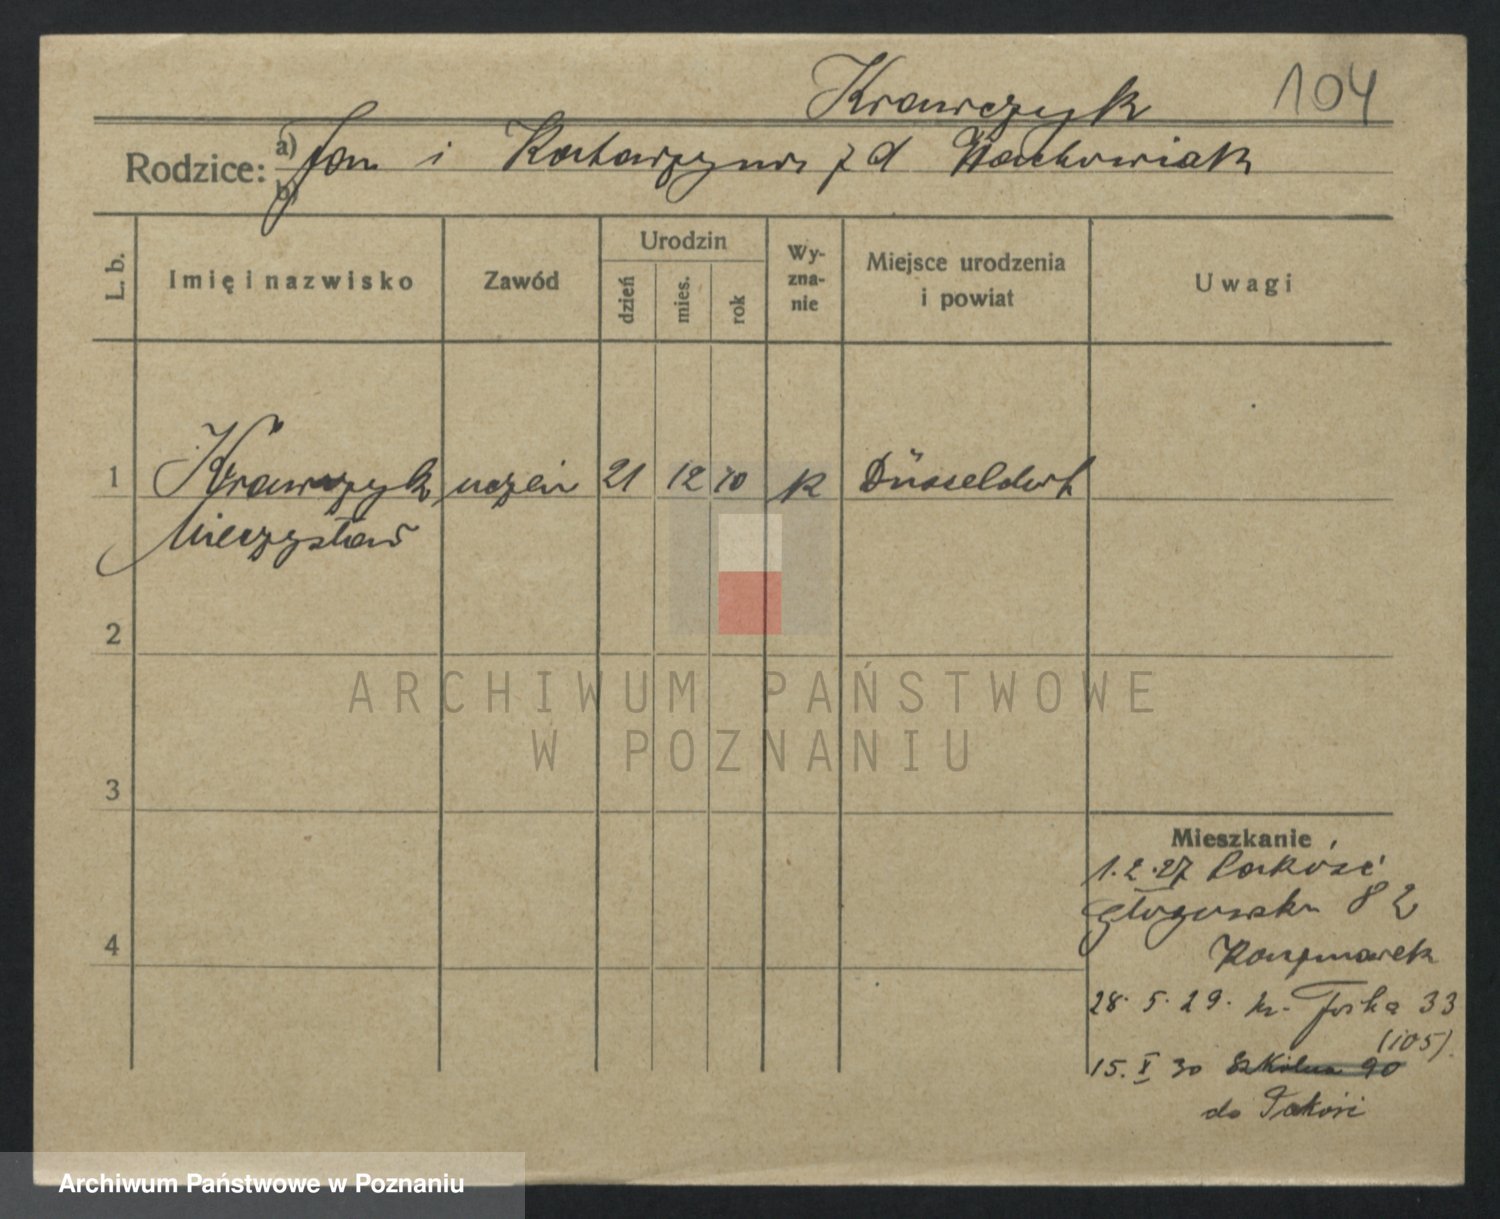 Krawczyk 104
Rodzice: a) Jan i Katarzyna z d Wachowiak
b)
L. b. Imię i nazwisko Zawód Urodzin dzień mies. rok Wy-zna-nie Miejsce urodzenia i powiat Uwagi
1 Krawczyk uczeń 21 12 10 k Düsseldorf
Mieczysław
2
ARCHIWUM PAŃSTWOWE
W POZNANIU
3
Mieszkanie
1.2.27 Pakość
Głogowska 82
Kaczmarek
4
28. 5. 29. kr. Jorka 33
(105).
15. X 30 Szkolna 90
do Pakości
Archiwum Państwowe w Poznaniu